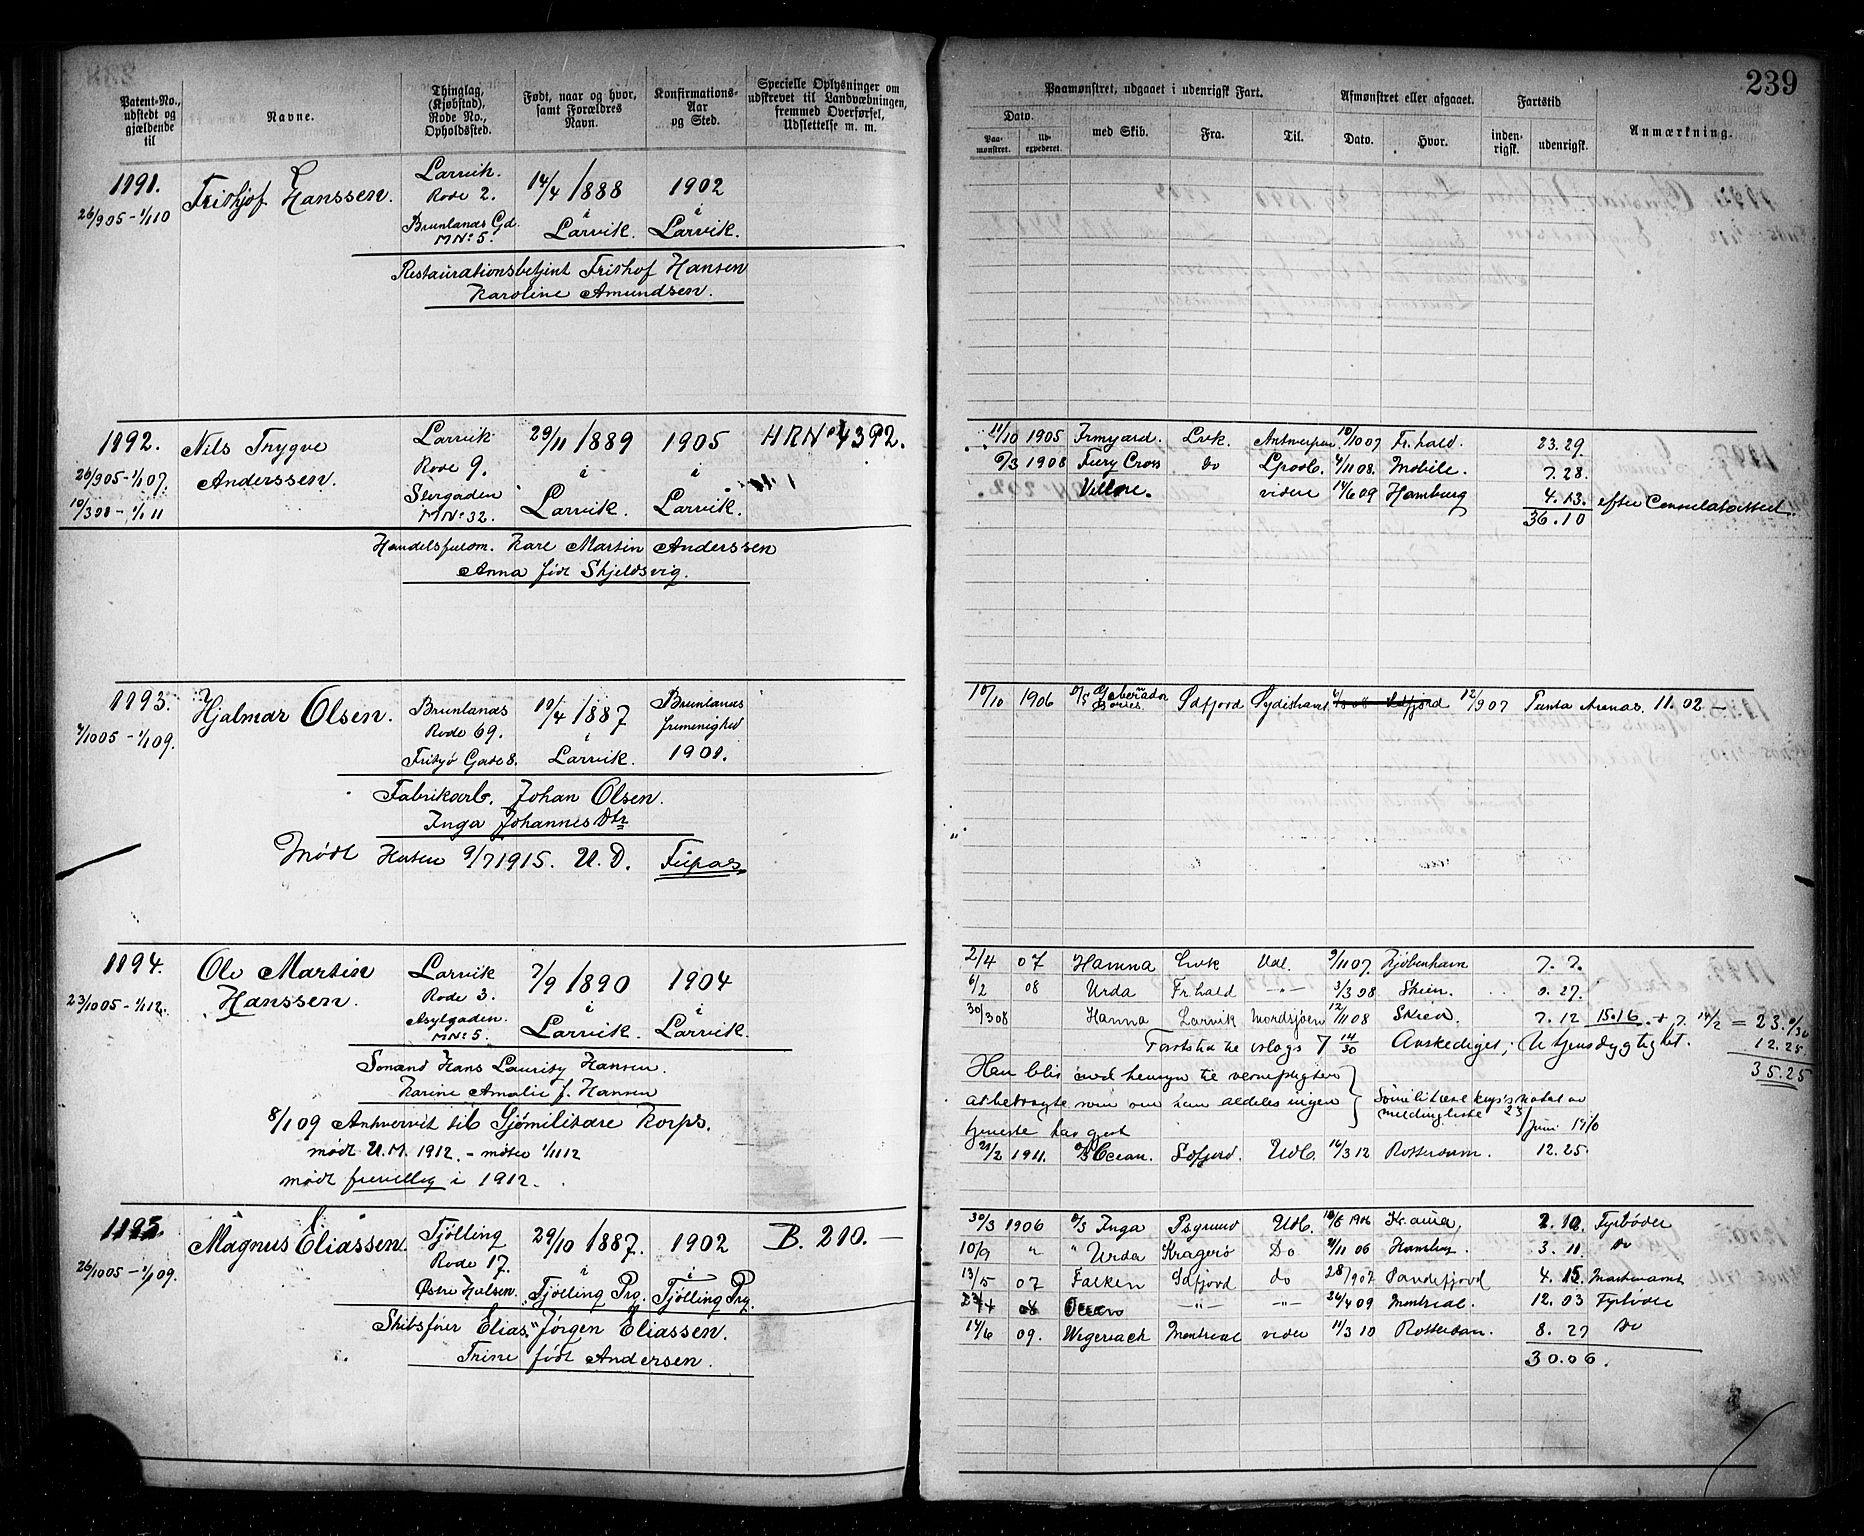 239
Patent-No., udstedt og gjældende til
Navne.
Thinglag, (Kjøbstad), Rode No., Opholdssted.
Født, naar og hvor, samt Forældres Navn.
Konfirmations-Aar og Sted.
Specielle Oplysninger om udskrevet til Landvæbningen, fremmed Overførsel, Udslettelse m. m.
Paamønstret, udgaaet i udenrigsk Fart.
Dato.
Paamønstret.
Udexpederet.
med Skib.
Fra.
Til.
Afmønstret eller afgaaet.
Dato.
Hvor.
Fartstid
indenrigsk.
udenrigsk.
Anmærkning.
1191.
26/905 - 1/1 10
Frithjof Hanssen.
Larvik.
Rode 2.
Brunlanes Gd.
MNo 5.
14/4 1888
i
Larvik.
1902
i
Larvik.
Restaurationsbetjent Frithof Hansen
Karoline Amundsen.
1192.
26/905 - 1/1 07.
Nils Trygve
Anderssen.
Larvik
Rode 9.
MNo 32.
29/11 1889
i
Larvik.
1905
i
Larvik.
HRNo 4392.
Karl Martin Anderssen
Anna født Skjeldsvig.
11/10 1905 Irmgard. Lvk. Antwerpen 10/10 07 Fr.hald. 23.29.
6/3 1908 Fiery Cross do Lpool. 4/11 08. Mobile. 7.28.
videre 14/6 09 Hamburg 4.13.
36.10
1193.
7/10 05 - 1/1 09.
Hjalmar Olsen.
Brunlanes
Rode 69.
Fritzø Gade 8.
10/4 1887
Larvik.
Brunlanes
frimenighed
1901.
Fabrikarb. Johan Olsen.
Inga Johannes Dtr
Mødt Horten 9/7 1915. U.D.
10/10 1906 Sdfjord Sydishavet 12/9 07 Punta Arenas. 11.02 -
1194.
23/10 05 - 1/1 12.
Ole Martin
Hanssen.
Larvik
Rode 3.
Asylgaden.
MNo 5.
7/9 1890
i
Larvik.
1904
i
Larvik.
Hans Lauritz Hansen.
Karine Amalie f. Hansen
8/1 09 Anhvervet til Sjømilitære Korps.
mødt U.M. 1912. - møter 1/11 12
mødt frivillig i 1912.
2/4 07 Hanna Lvk Udl. 9/11 07. Kjøbenhavn 7.7.
6/2 08 Urda Fr.hald -"- 3/3 08 Skien. 0.27.
30/3 08 Hanna Larvik Nordsjøen 12/11 08 Skien. 7.12 15.16
12.25
35.25
Fartstid til orlogs 7 14/30
Han blir med hensyn til vernepligten
at betragte som om han aldeles ingen
tjeneste har gjort
Juni 1910
21/2 1911. D/S Ocean. Sdfjord. Udl. 16/3 12 Rotterdam. 12.25
1195.
26/10 05 - 1/1 09.
Magnus Eliassen.
Tjølling
Rode 17.
Østre Halsen.
29/10 1887.
i
Tjølling Prg.
1902
i
Tjølling Prg.
B. 210. -
Skibsfører Elias Jørgen Eliassen.
Trine født Andersen.
30/3 1906 D/S Inga Psgrund Udl. Kr.ania, 2.10 Fyrbøder
10/9 " " Urda Kragerø Do 2/11 06 Hambg. 3.11. Do
13/5 07 Falken Sdfjord do 28/9 07 Sandefjord 4.15.
08 Ocean -"- -"- 26/4 09 Montreal. 12.03 Fyrbøder
14/6 09. Wegersach Montreal videre 11/3 10 Rotterdam. 8.27 Do
30.06.